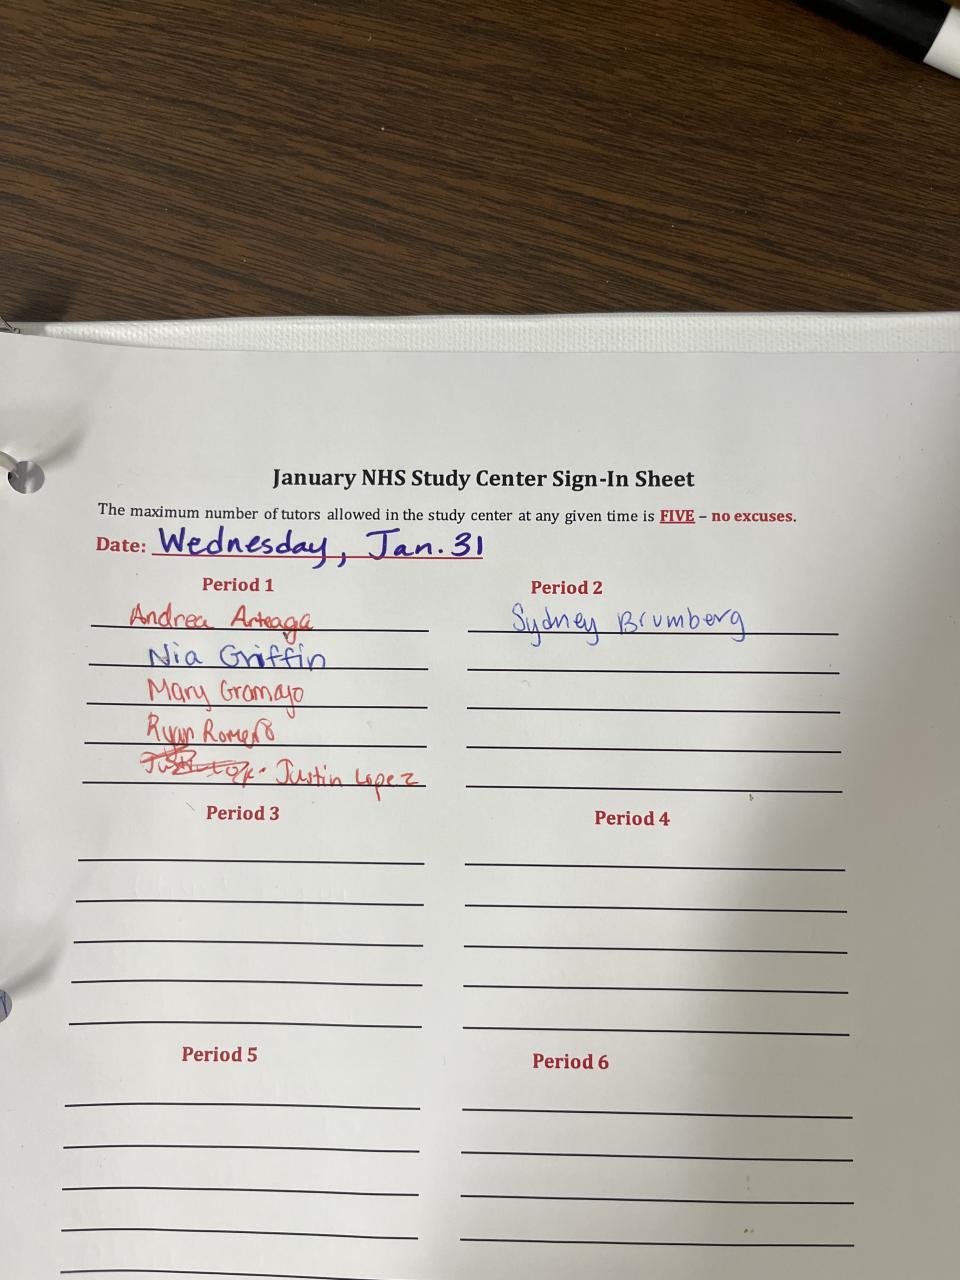 January NHS Study Center Sign-In Sheet
The maximum number of tutors allowed in the study center at any given time is FIVE – no excuses.
Date: Wednesday, Jan. 31
Period 1
Andrea Arteaga
Nia Griffin
Mary Gramajo
Ryan Romero
Justin Lopez
Period 2
Sydney Brumberg
Period 3
Period 4
Period 5
Period 6